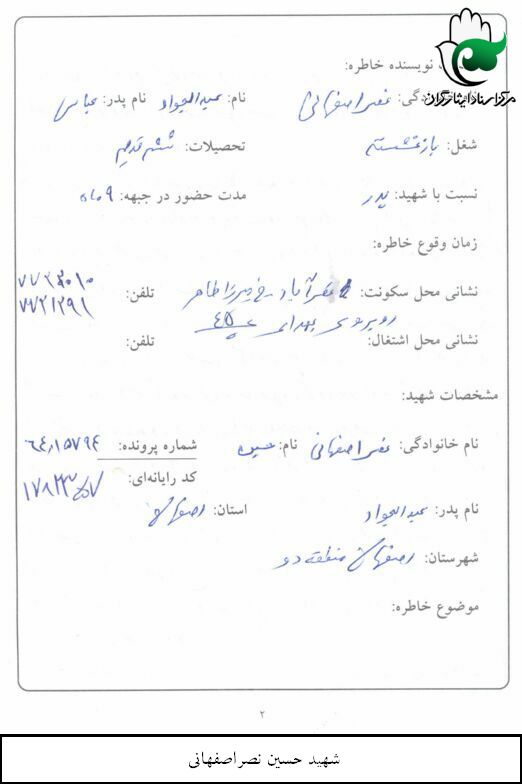 مرکز اسناد ایثارگران
نویسنده خاطره:
نام خانوادگی: نصراصفهانی نام: عبدالجواد نام پدر: عباس
شغل: بازنشسته تحصیلات: ششم قدیم
نسبت با شهید: پدر مدت حضور در جبهه: ۹ ماه
زمان وقوع خاطره:
نشانی محل سکونت: نصرآباد خ میرزا طاهر تلفن: ۷۷۳۳۰۱۰
روبروی بهداری ۷۷۲۱۲۹۱
نشانی محل اشتغال: تلفن:
مشخصات شهید:
نام خانوادگی: نصراصفهانی نام: حسین شماره پرونده: ۶۴٫۱۵۷۹۴
کد رایانه‌ای:
نام پدر: عبدالجواد استان: اصفهان
شهرستان: اصفهان منطقه دو
موضوع خاطره:
۲
شهید حسین نصراصفهانی